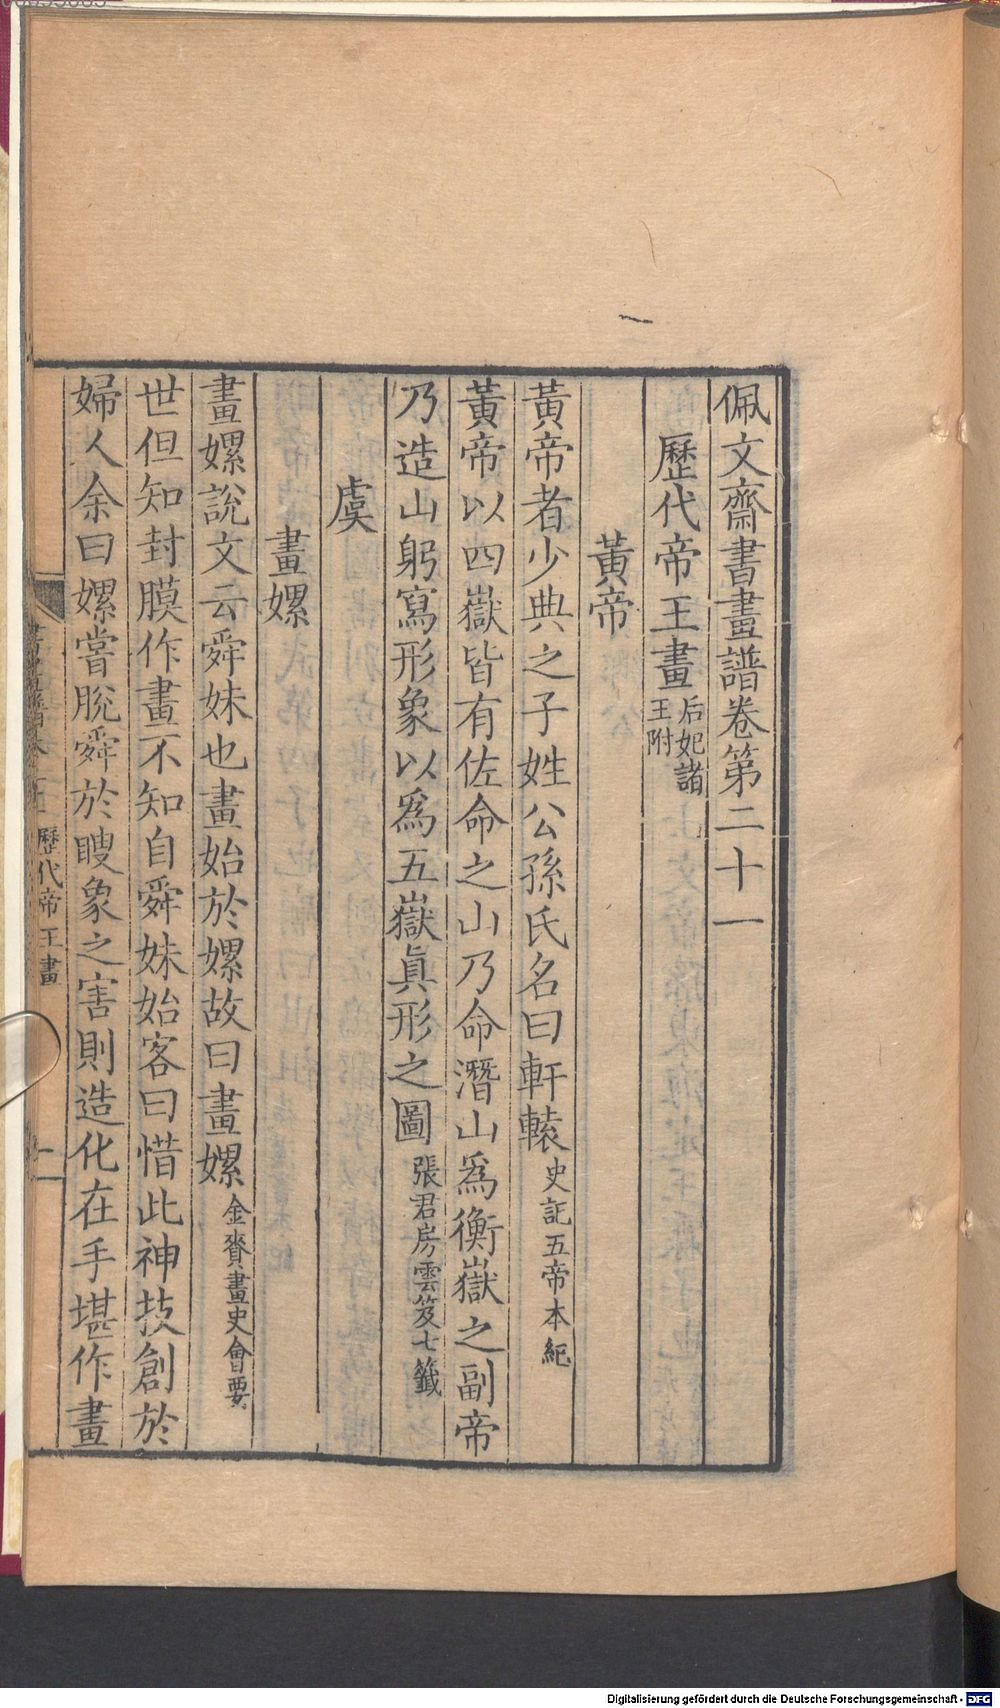 佩文齋書畫譜卷第二十一
歷代帝王畫 后妃諸王附
黃帝
黃帝者少典之子姓公孫氏名曰軒轅 史記五帝本紀
黃帝以四嶽皆有佐命之山乃命潛山爲衡嶽之副帝
乃造山躬寫形象以爲五嶽眞形之圖 張君房雲笈七籤
虞
畫嫘
畫嫘說文云舜妹也畫始於嫘故曰畫嫘 金賚畫史會要
世但知封膜作畫不知自舜妹始客曰惜此神技創於
婦人余曰嫘嘗脫舜於瞍象之害則造化在手堪作畫
歷代帝王畫
一
Digitalisierung gefördert durch die Deutsche Forschungsgemeinschaft - DFG